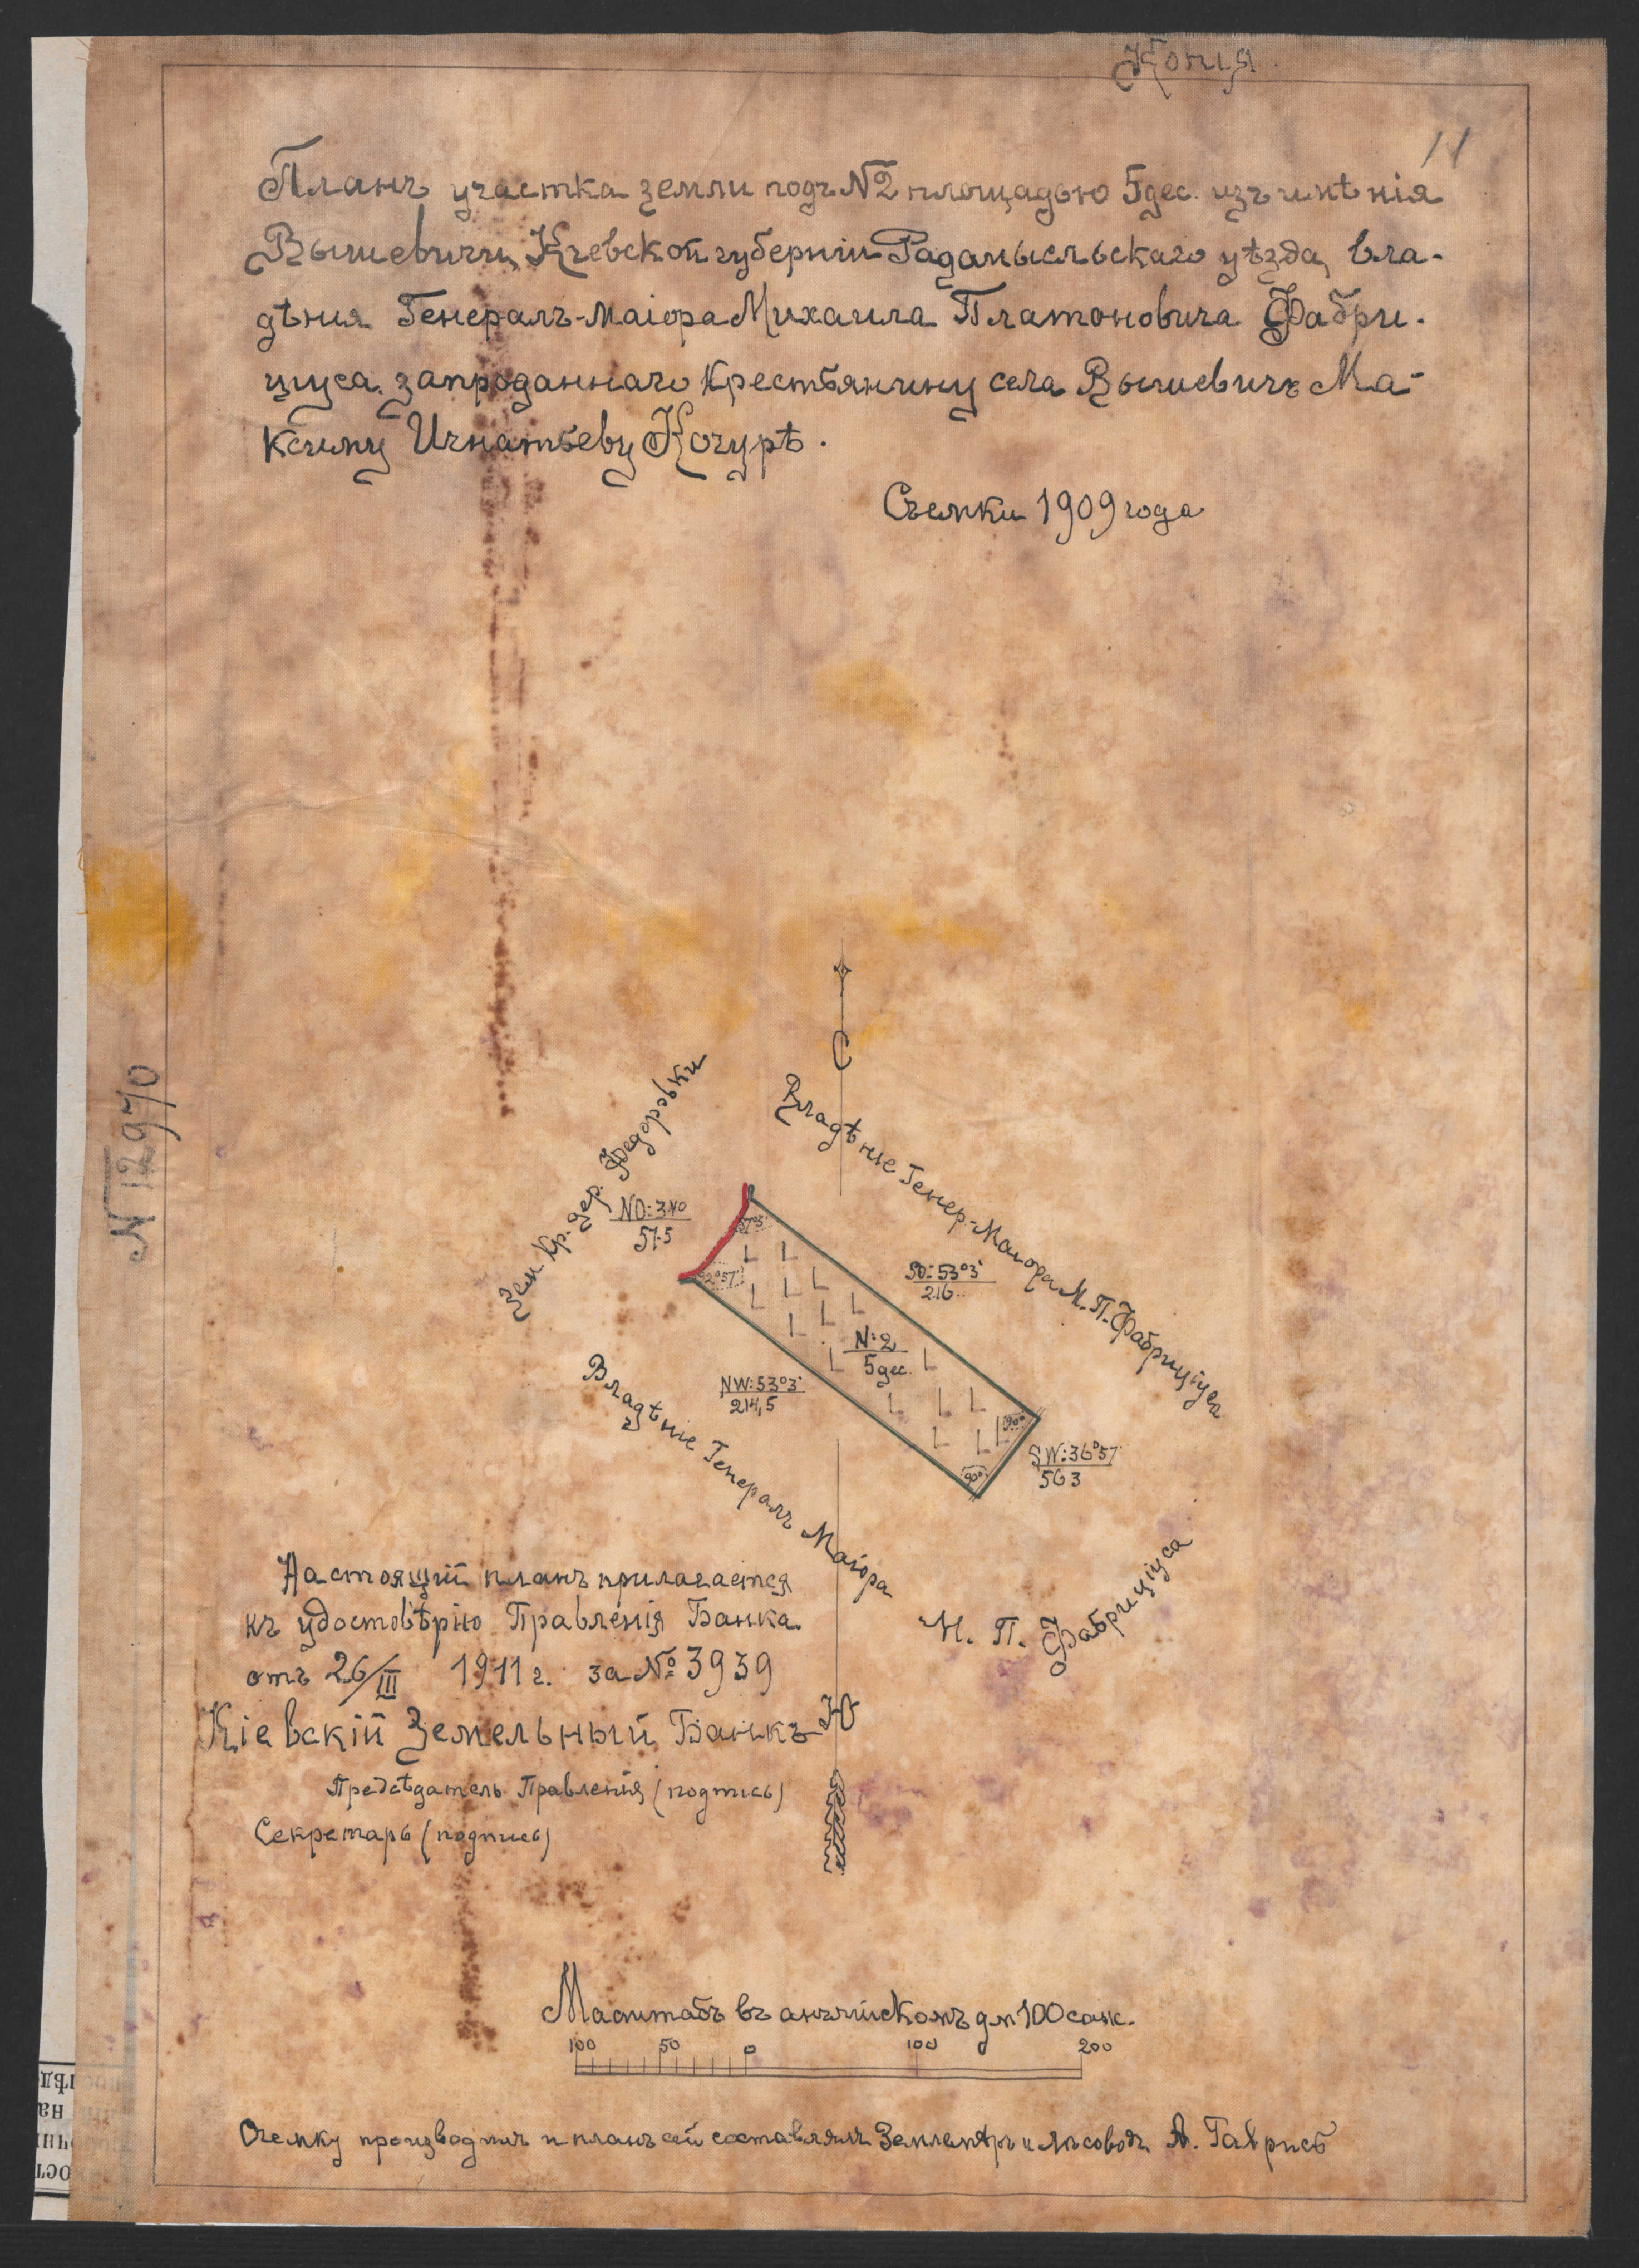 Копія.
11
Планъ участка земли подъ №2 площадью 5 дес. изъ имѣнія
Вышевичи, Кіевской губерніи Радомысльскаго уѣзда, вла-
дѣния Генералъ-Маіора Михаила Платоновича Фабри-
циуса, запроданнаго Крестьянину села Вышевичъ Ма-
ксиму Игнатьеву Кочурѣ.
Съемки 1909 года
N 12970
С
Зем. Кр. дер. Федоровки
Владѣніе Генер-Маіора М.П. Фабриціуса
NO:34°
57.5
87°3'
92°57'
SO:53°3'
216
N:2
5 дес.
NW:53°3'
214,5
90°
90°
SW:36°57'
56 3
Владѣніе Генералъ Маіора
М. П. Фабриціуса
Настоящій планъ прилагается
къ удостовѣрію Правленія Банка
отъ 26/III 1911 г. за № 3939
Кіевскій Земельный Банкъ
Ю
Предсѣдатель Правленія (подпись)
Секретарь (подпись)
Масштабъ въ англійскомъ дм 100 саж.
100 50 0 100 200
Съемку производилъ и планъ сей составлялъ Землемѣръ и лѣсоводъ А. Гаврисъ